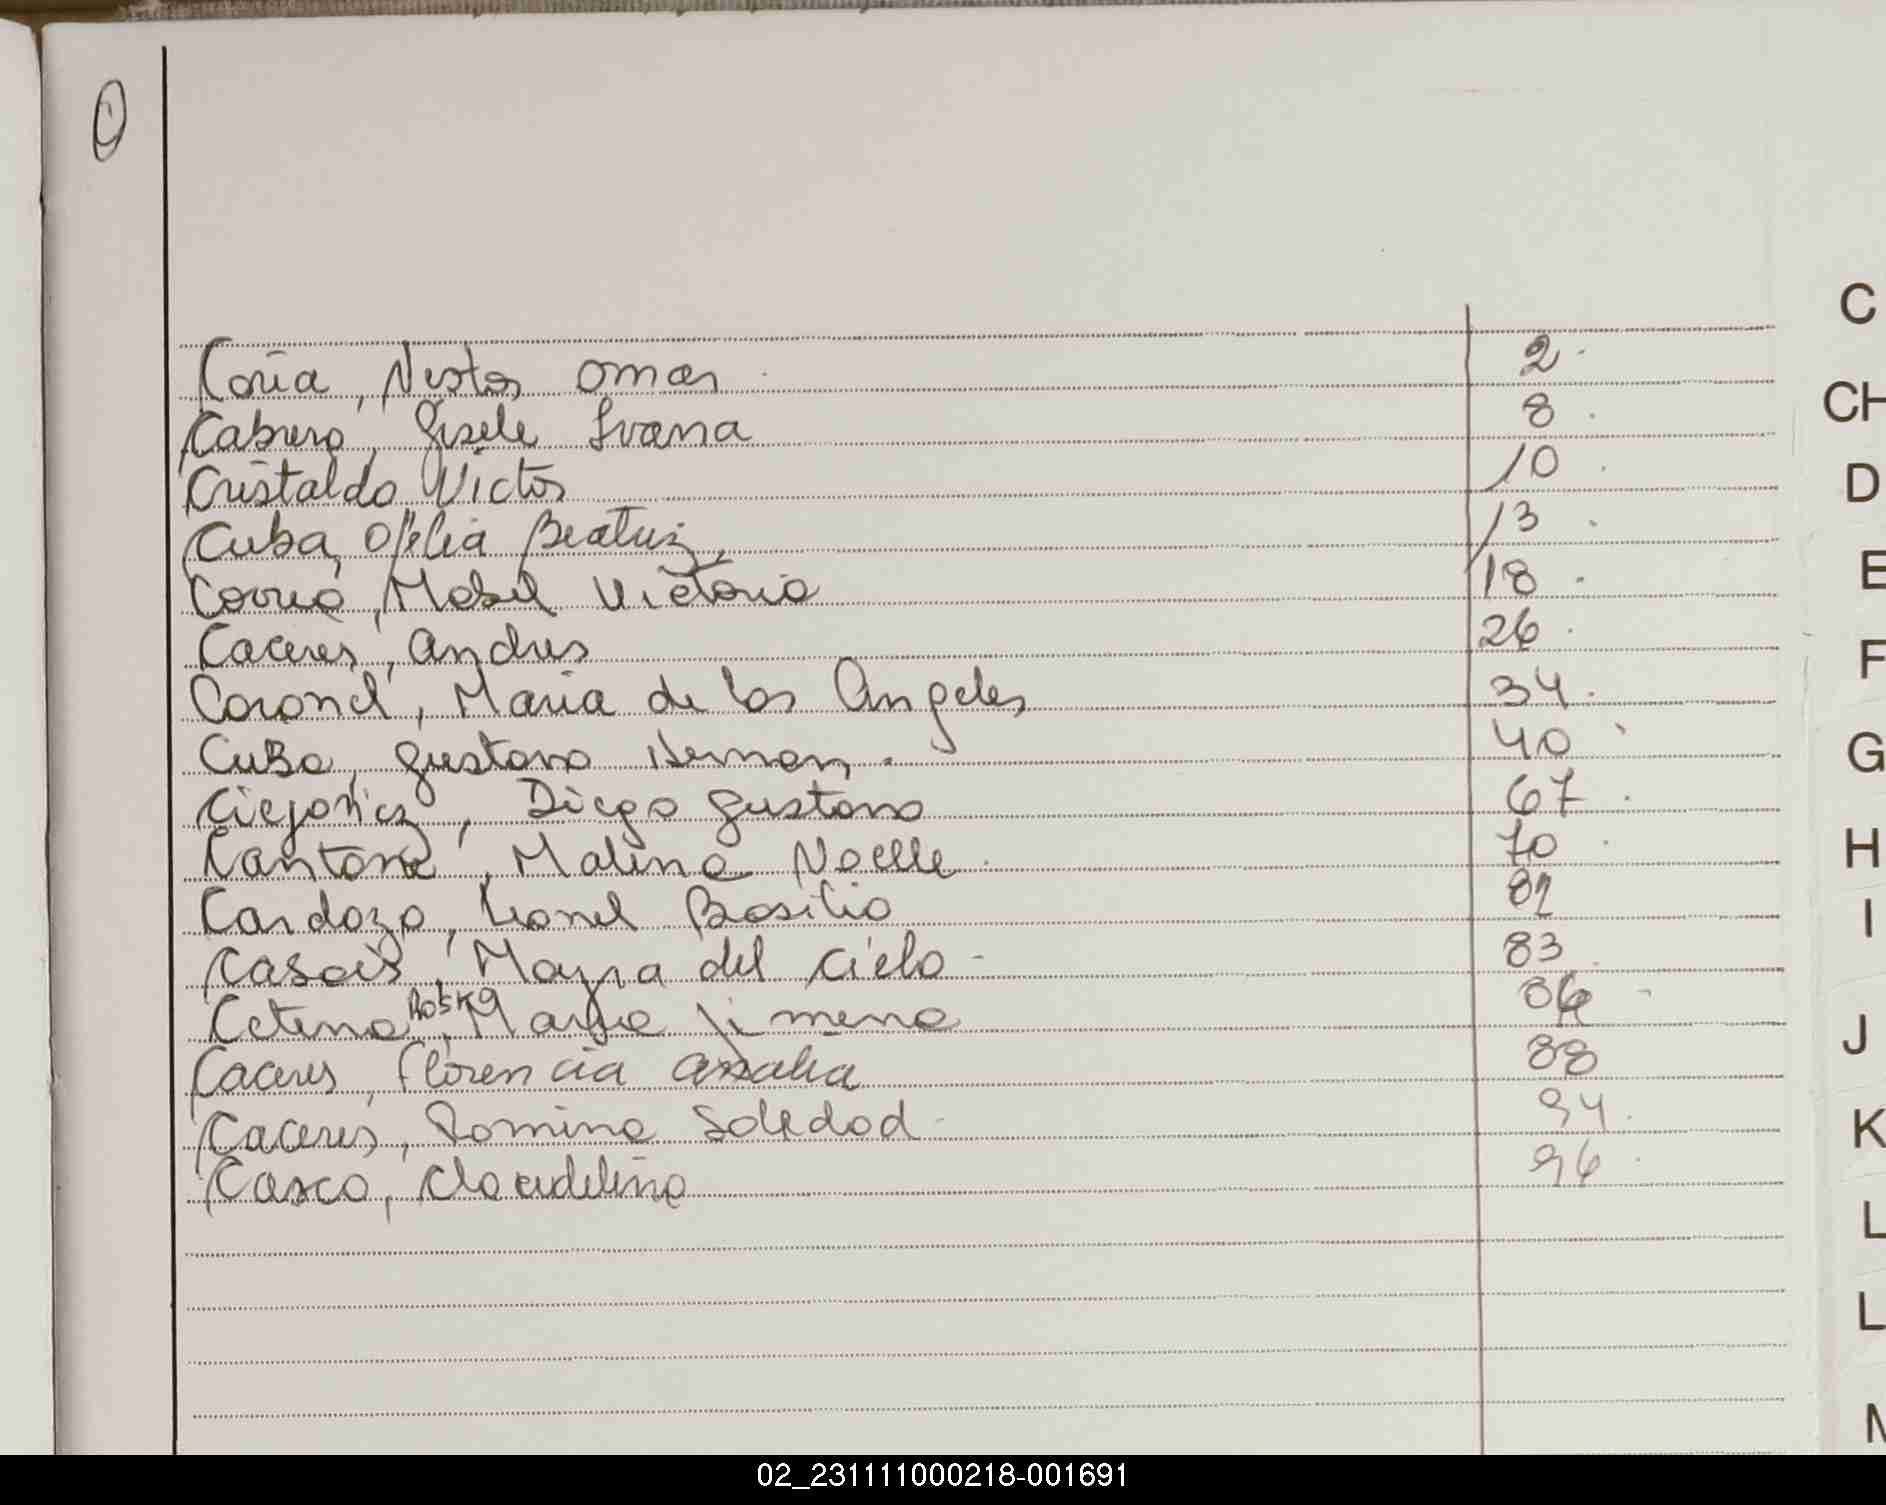 C
Coria, Nestor Omar 2
Cabrera, Gisele Ivana 8
CH
Cristaldo Victor 10
D
Cuba, Ofelia Beatriz, 13
Correa, Mabel Victoria 18
E
Caceres, Andres 26
F
Coronel, Maria de los Angeles 34
Cuba, Gustavo Hernan. 40
G
Diego Gustavo 67
Cantone, Malena Noelle 70
H
Cardozo, Leonel Basilio 82
I
Casais, Mayra del Cielo 83
Maria Jimena 86
J
Caceres, Florencia Analia 88
Caceres, Romina Soledad 94
K
Casco, Claudelina 96
L
L
M
02_231111000218-001691